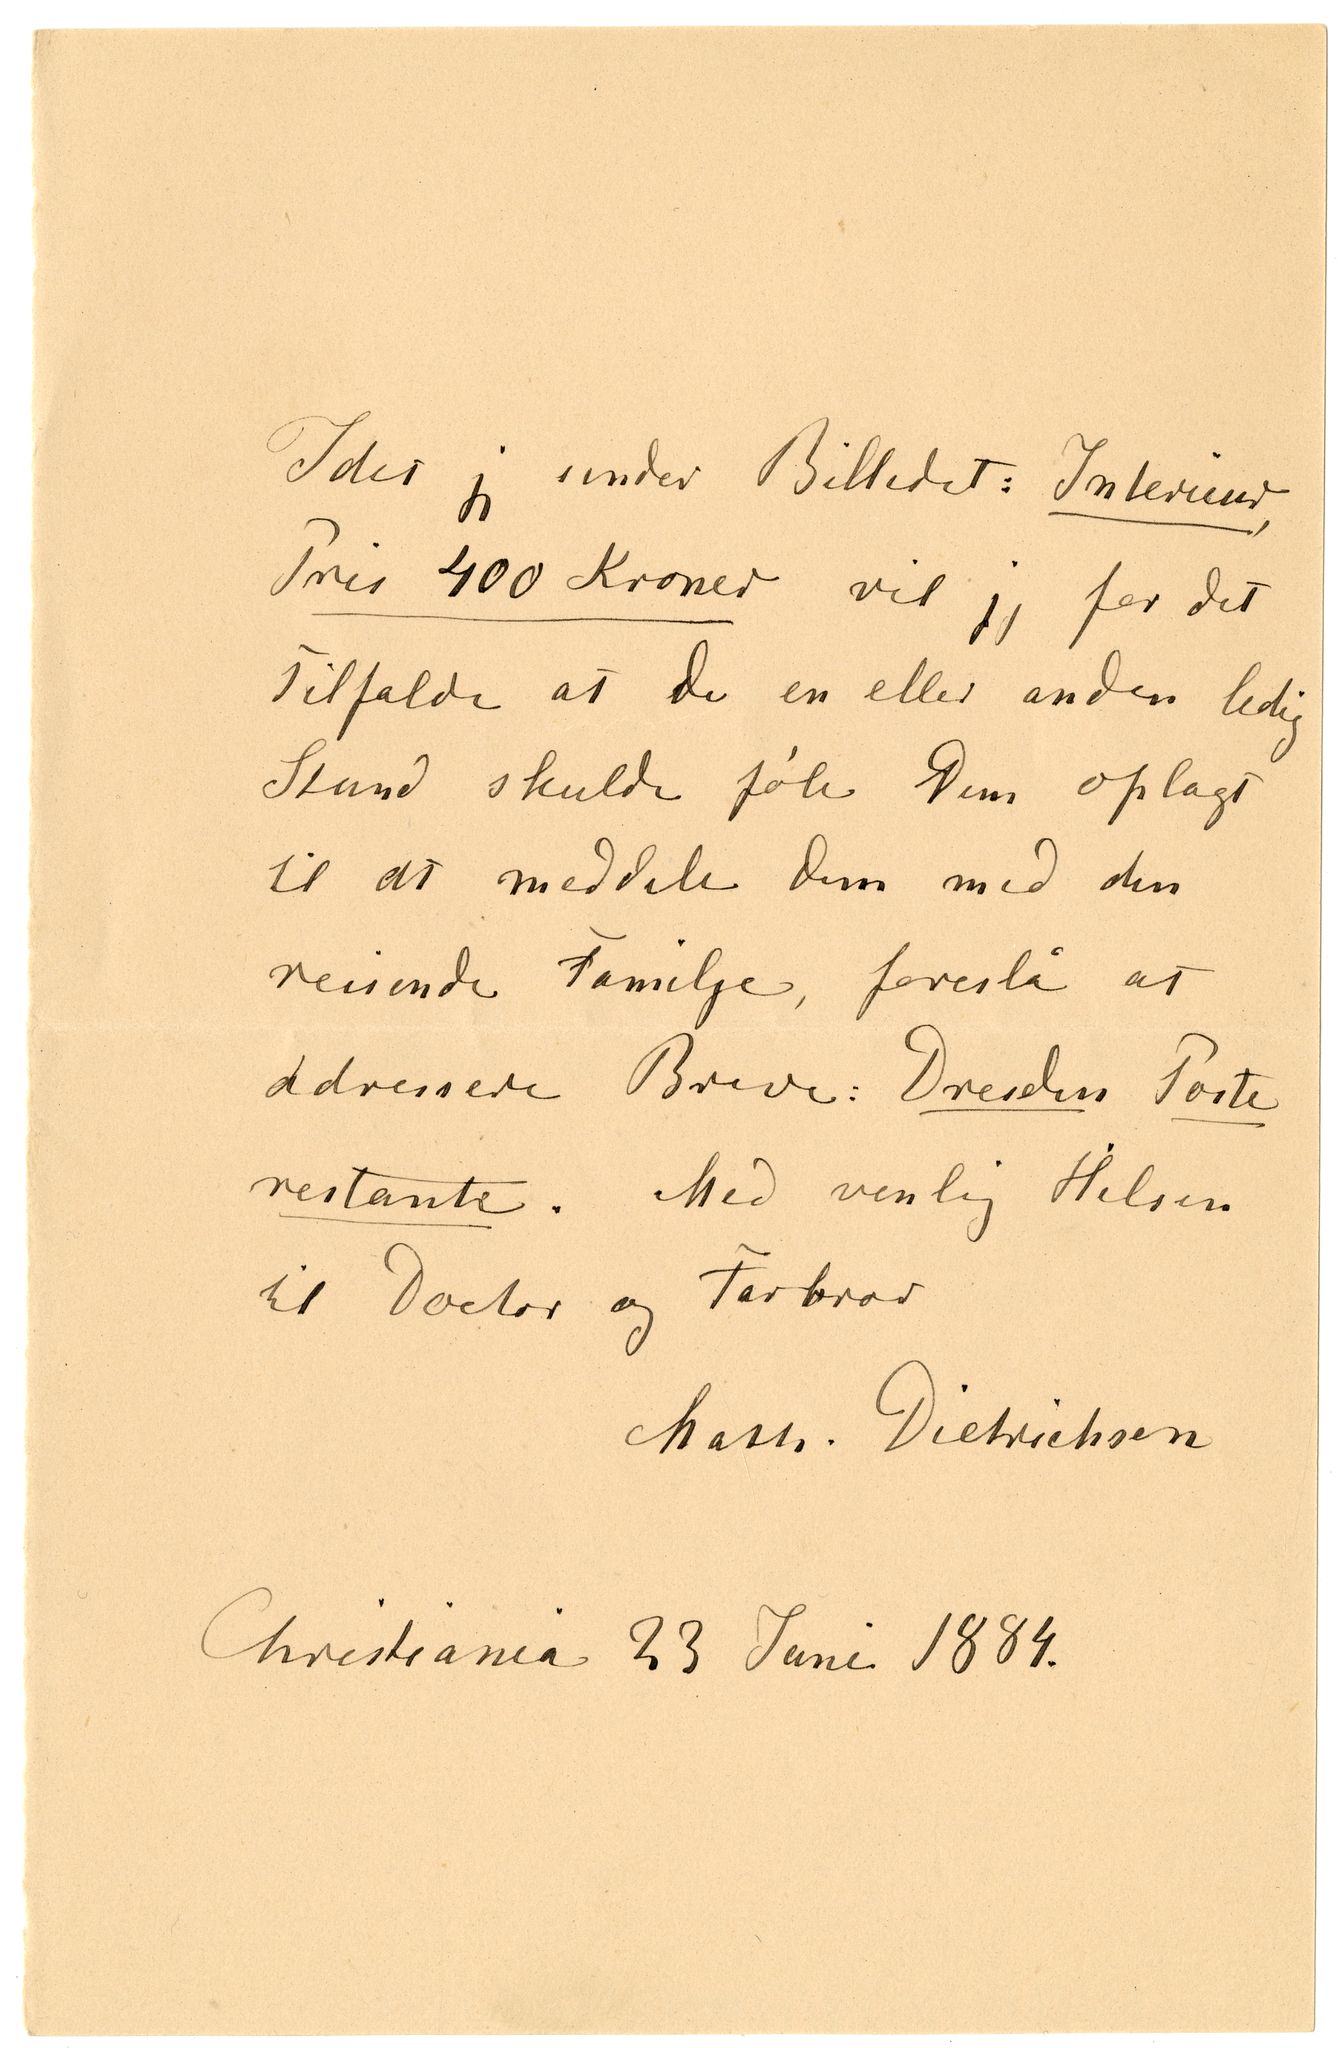 Idet jeg sender Billedet: Interieur,
Pris 400 Kroner vil jeg for det
Tilfælde at De en eller anden ledig
Stund skulde føle Dem oplagt
til at meddele Dem med den
reisende Familje, foreslå at
adressere Breve: Dresden Poste
restante. Med venlig Hilsen
til Doctor og Farbror
Math. Dietrichson
Christiania 23 Juni 1884.